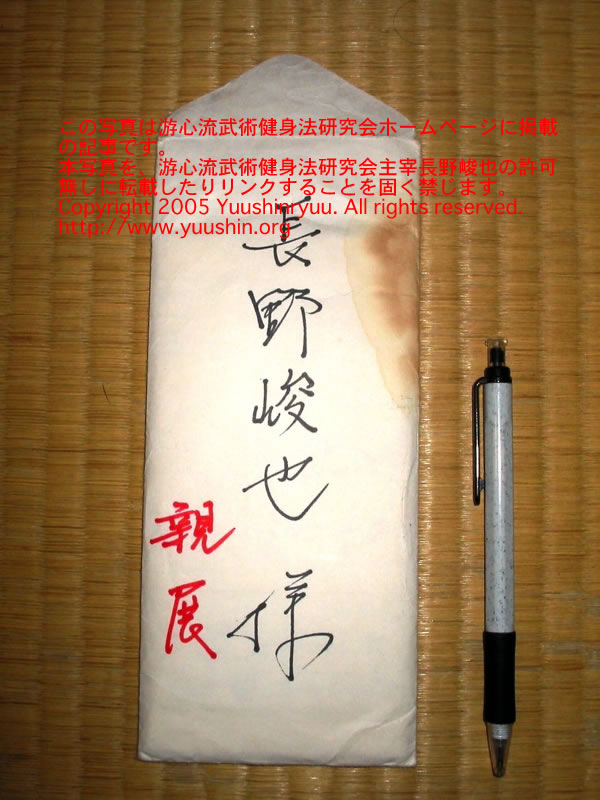 この写真は游心流武術健身法研究会ホームページに掲載
の記事です。
本写真を、游心流武術健身法研究会主宰長野峻也の許可
無しに転載したりリンクすることを固く禁じます。
Copyright 2005 Yuushinryuu. All rights reserved.
http://www.yuushin.org
長野峻也様
親展